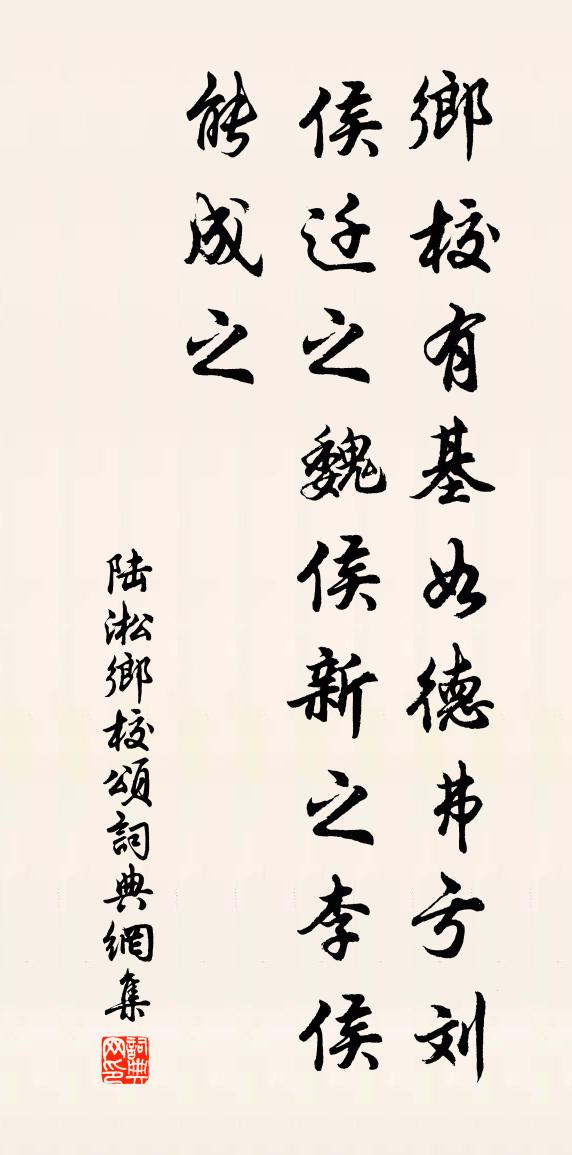 鄉校有基如德弗亏刘
侯迁之魏侯新之李侯
能成之
陆淞鄉校頌詞典網集
詞典网印